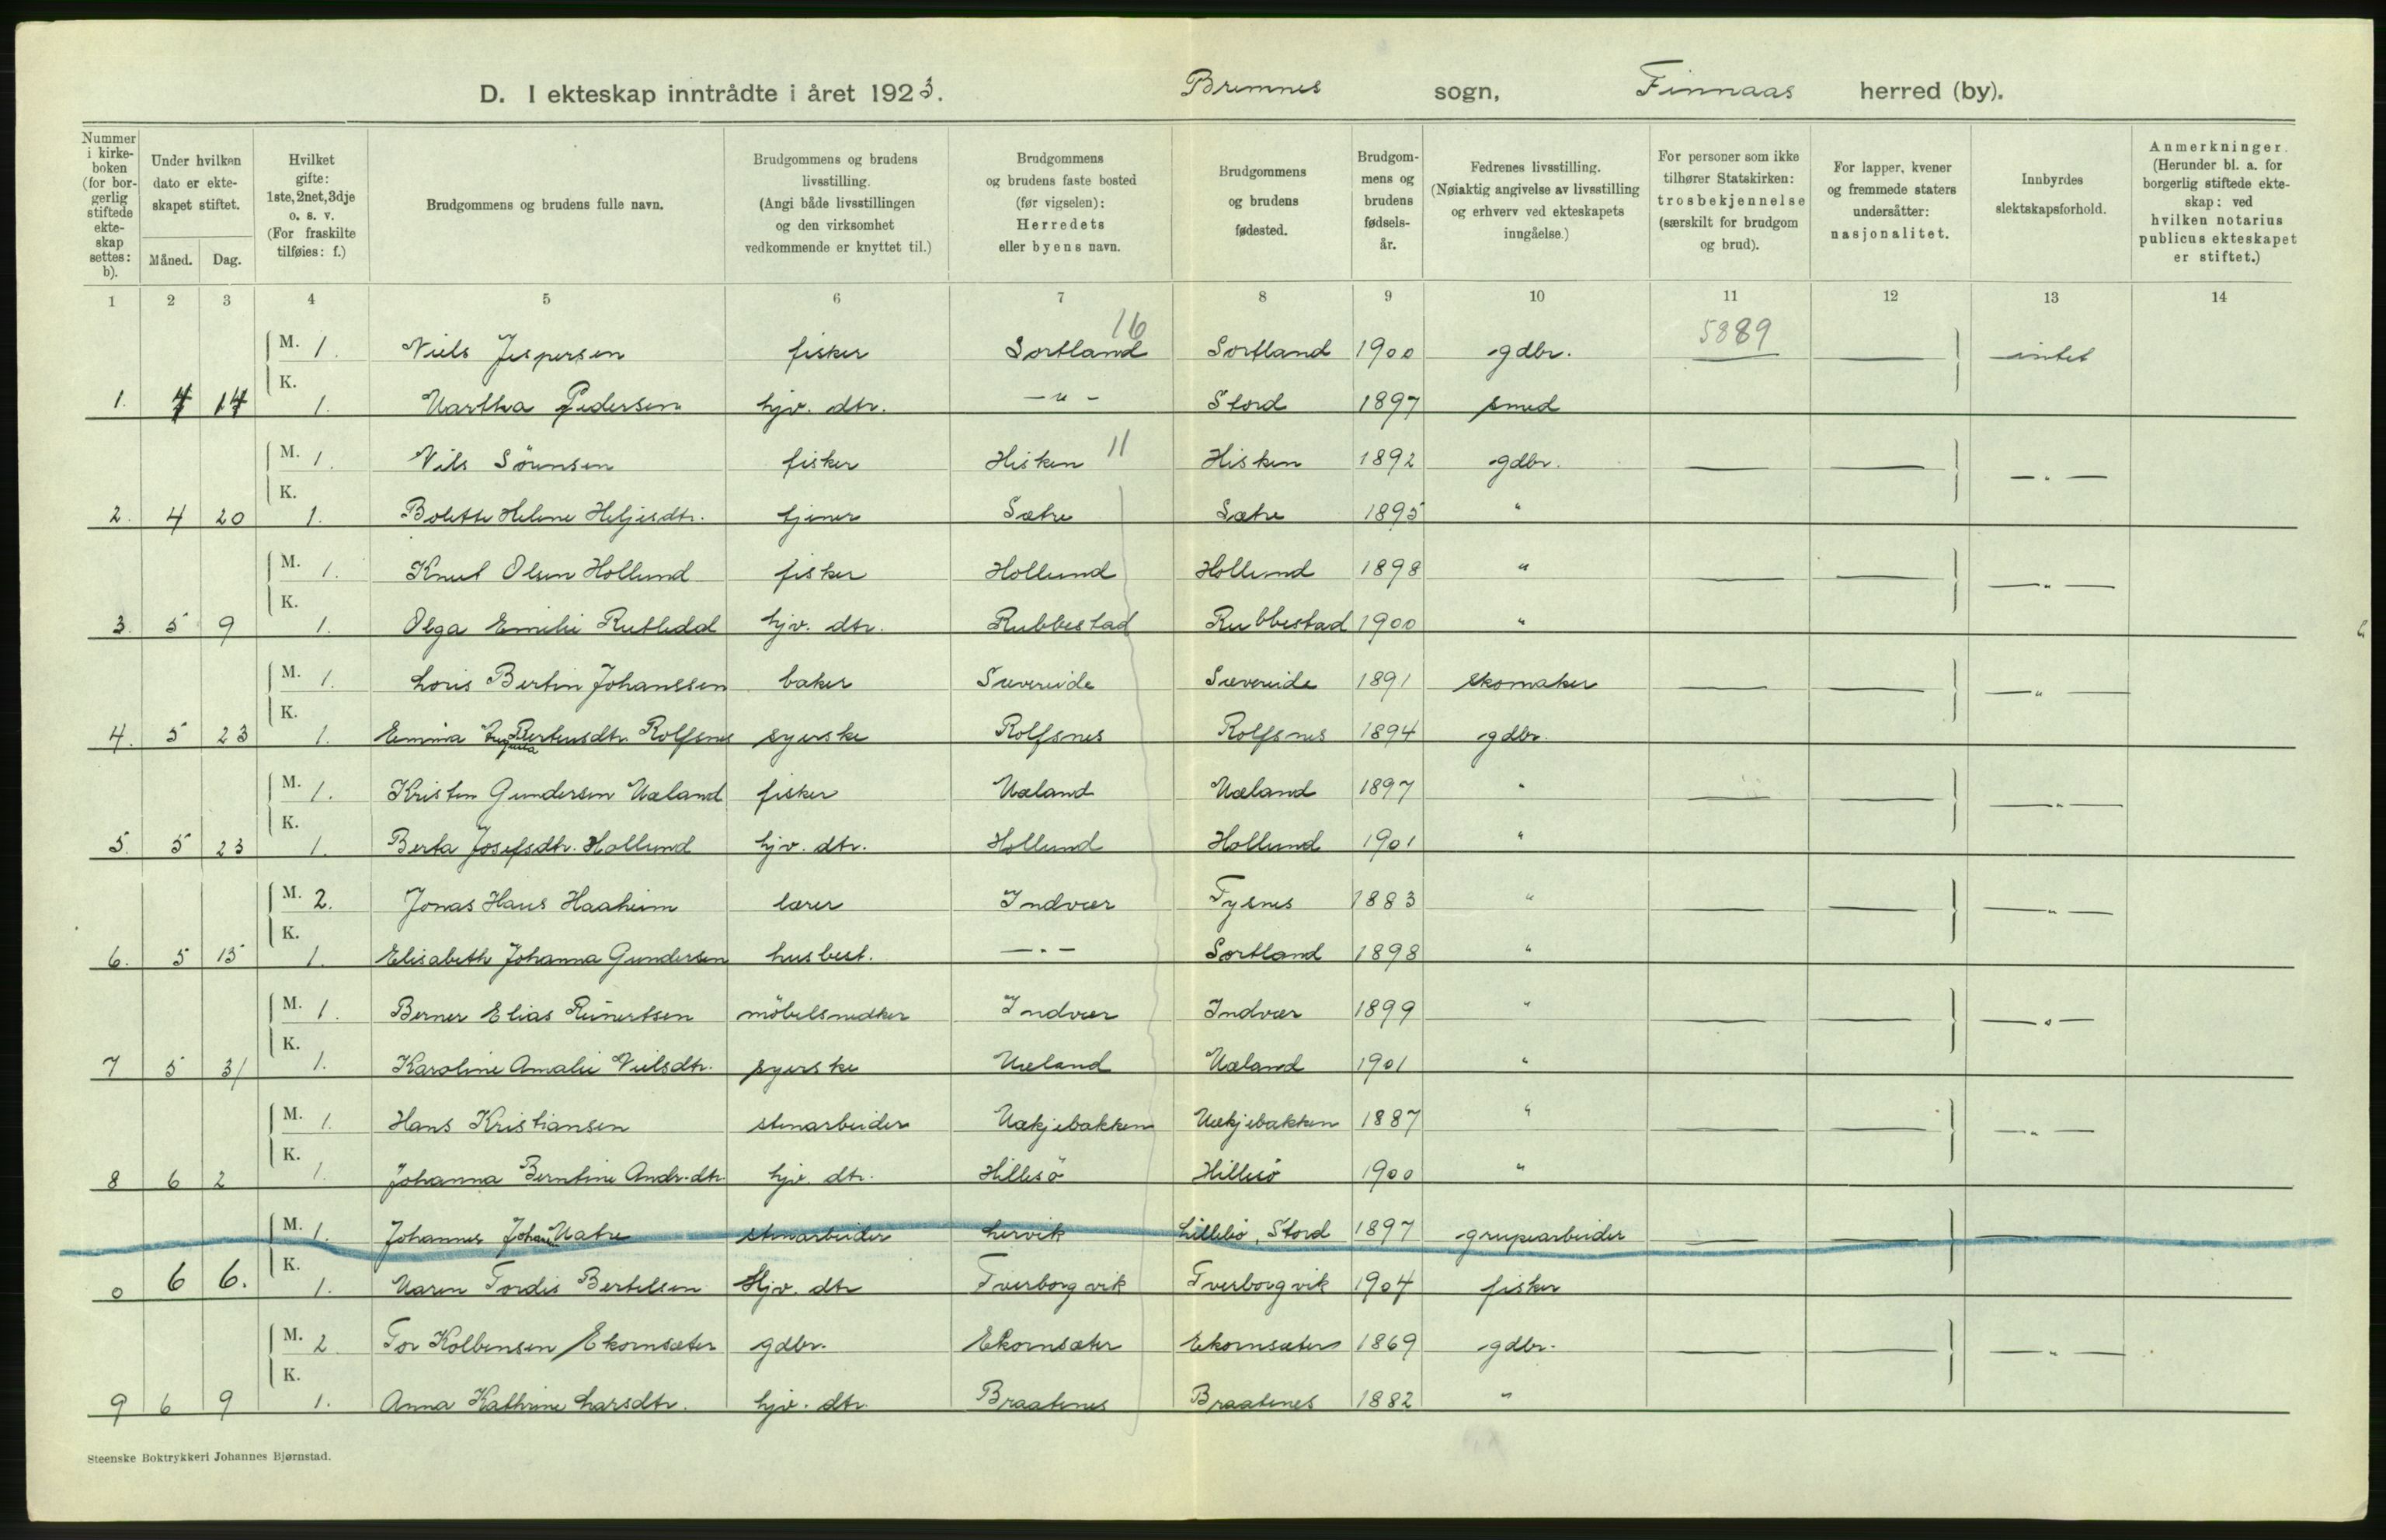 D. I ekteskap inntrådte i året 1923. Bremnes sogn, Finnaas herred (by).
Nummer i kirkeboken (for borgerlig stiftede ekteskap settes: b).
Under hvilken dato er ekteskapet stiftet.
Måned. Dag.
Hvilket gifte: 1ste, 2net, 3dje o. s. v. (For fraskilte tilføies: f.)
Brudgommens og brudens fulle navn.
Brudgommens og brudens livsstilling. (Angi både livsstillingen og den virksomhet vedkommende er knyttet til.)
Brudgommens og brudens faste bosted (før vigselen): Herredets eller byens navn.
Brudgommens og brudens fødested.
Brudgommens og brudens fødselsår.
Fedrenes livsstilling. (Nøiaktig angivelse av livsstilling og erhverv ved ekteskapets inngåelse.)
For personer som ikke tilhører Statskirken: trosbekjennelse (særskilt for brudgom og brud).
For lapper, kvener og fremmede staters undersåtter: nasjonalitet.
Innbyrdes slektskapsforhold.
Anmerkninger. (Herunder bl. a. for borgerlig stiftede ekteskap: ved hvilken notarius publicus ekteskapet er stiftet.)
1 2 3 4 5 6 7 8 9 10 11 12 13 14
16 5889
M. 1. Niels Jespersen fisker Sortland Sortland 1900 gdbr. — intet
1. 4 14 K. 1. Martha Pedersen hjv. dtr. —"— Stord 1897 smed
M. 1. Nils Sörensen fisker Hisken 11 Hisken 1892 gdbr. — — —"—
2. 4 20 K. 1. Bolette Helene Heljesdtr. tjener Sætre Sætre 1895 "
M. 1. Knut Olsen Hollund fisker Hollund Hollund 1898 " — — —"—
3. 5 9 K. 1. Olga Emilie Rutledal hjv. dtr. Rubbestad Rubbestad 1900 "
M. 1. Loris Bertin Johanssen baker Sævereide Sævereide 1891 skomaker — — —"—
4. 5 23 K. 1. Emma Bertensdtr. Rolfsnes syerske Rolfsnes Rolfsnes 1894 gdbr.
M. 1. Kristen Gundersen Mæland fisker Mæland Mæland 1897 " — — —"—
5. 5 23 K. 1. Berta Josefsdtr. Hollund hjv. dtr. Hollund Hollund 1901 "
M. 2. Jonas Hans Haaheim lærer Indvær Tysnes 1883 " — — —"—
6. 5 15 K. 1. Elisabeth Johanna Gundersen husbest. —"— Sortland 1898 "
M. 1. Berner Elias Reinertsen möbelsnedker Indvær Indvær 1899 " — — —"—
7 5 31 K. 1. Karoline Amalie Nielsdtr. syerske Mæland Mæland 1901 "
M. 1. Hans Kristiansen stenarbeider Mækjebakken Mækjebakken 1887 " — — —"—
8 6 2 K. 1. Johanna Berntine Andr.dtr. hjv. dtr. Hillesö Hillesö 1900 "
M. 1. Johannes Johan Matre stenarbeider Lervik Lillebö, Stord 1897 grubearbeider — —
0 6 6. K. 1. Maren Tordis Bertelsen Hjv. dtr Tverborgvik Tverborgvik 1904 fisker
M. 2 Tor Kolbensen Ekornsæter gdbr. Ekornsæter Ekornsæter 1869 gdbr. — — —"—
9 6 9 K. 1. Anna Kathrine Larsdtr. hjv. dtr. Braatenes Braatenes 1882 "
Steenske Boktrykkeri Johannes Bjørnstad.